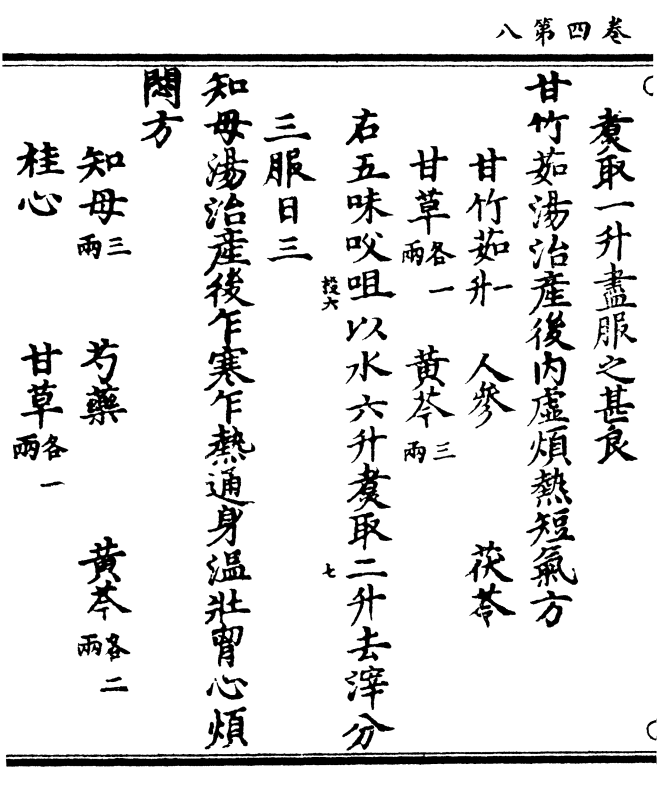 卷四第八
煑取一升盡服之甚良
甘竹茹湯治産後内虛煩熱短氣方
甘竹茹一升 人參 茯苓
甘草各一兩 黄芩三兩
右五味㕮咀以水六升煑取二升去滓分
三服日三
知母湯治産後乍寒乍熱通身温壯胷心煩
悶方
知母三兩 芍藥 黄芩各二兩
桂心 甘草各一兩
投六
七